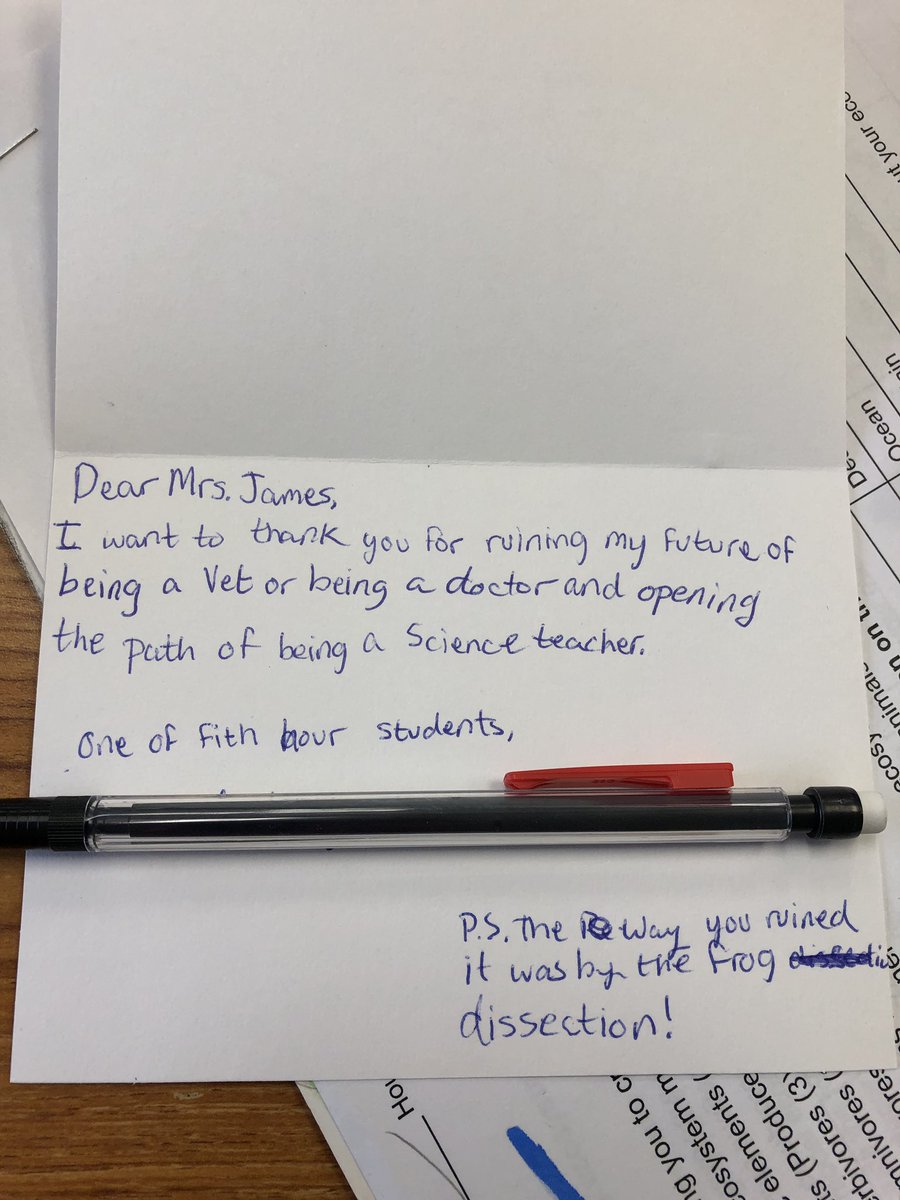 Dear Mrs. James,
I want to thank you for ruining my future of
being a Vet or being a doctor and opening
the path of being a Science teacher.
One of fith hour students,
P.S. The way you ruined
it was by the frog
dissection!
ut your eco
Ocean
on on th
animals
ecosy
Ho
ng you to c
osystem m
elements
s (Produce
erbivores (
mnivores (3)